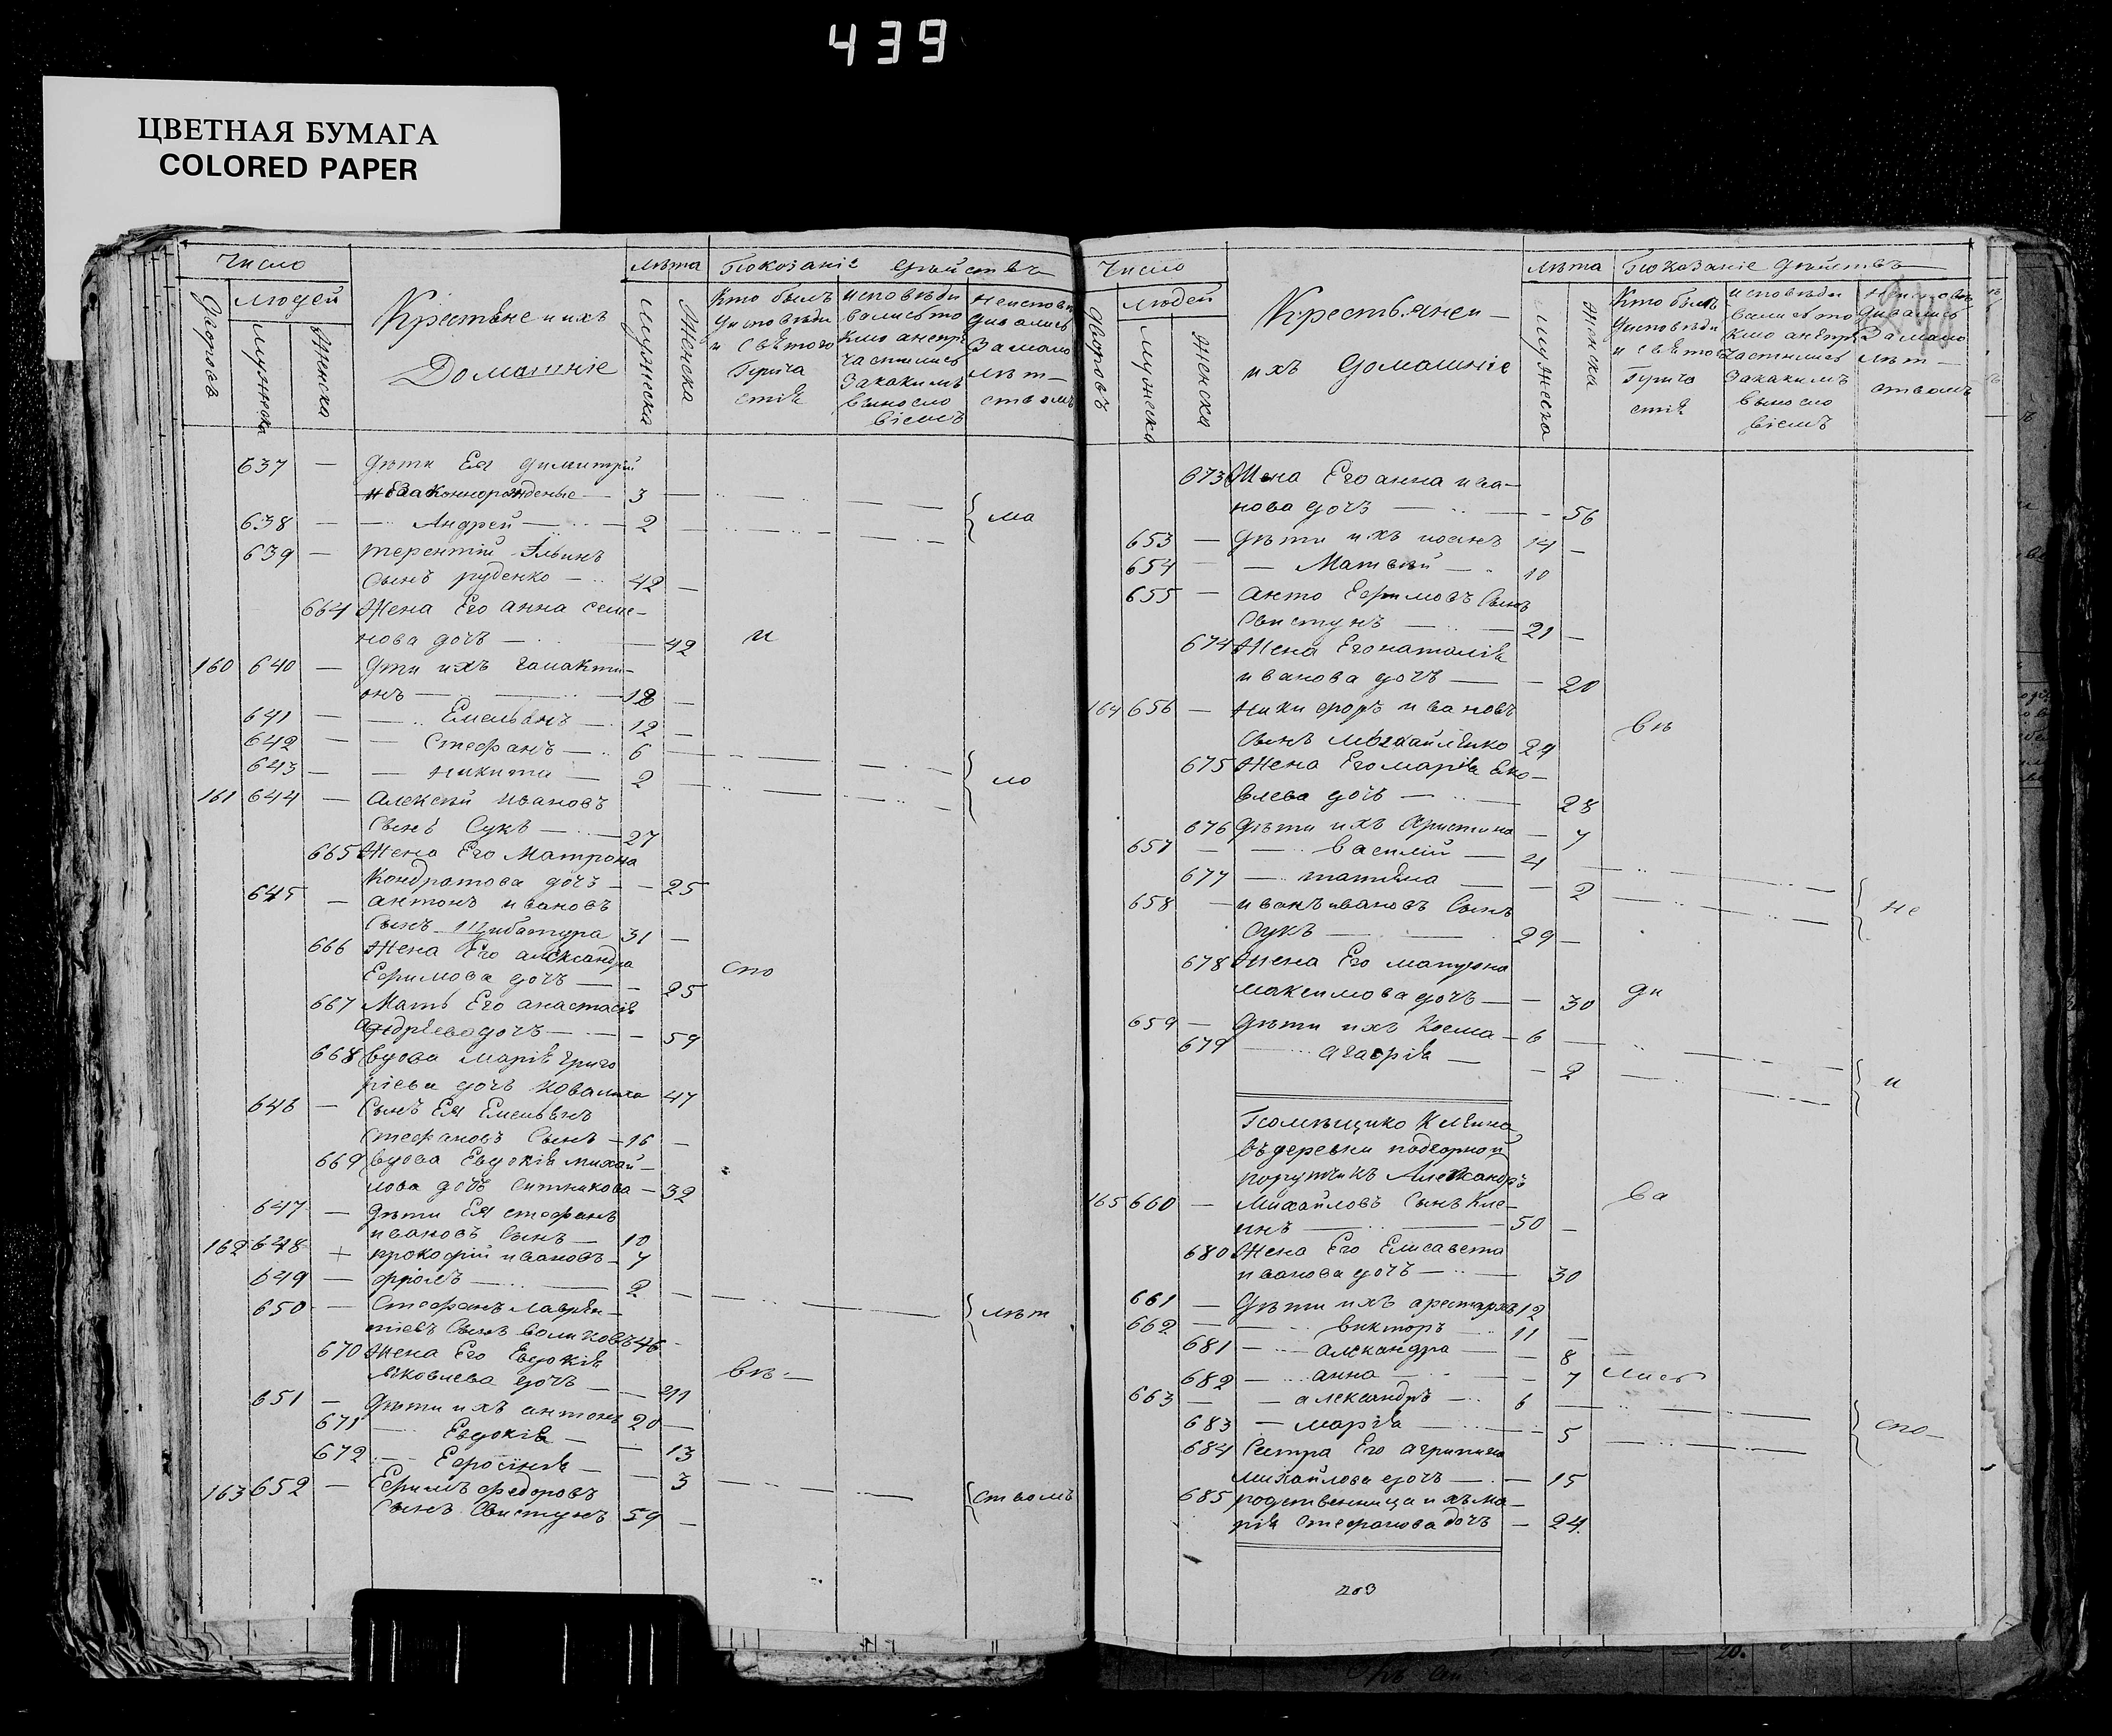 439
ЦВЕТНАЯ БУМАГА
COLORED PAPER
Число
лѣта Показаніе дѣйствъ
людей
Дворовъ
Мужеска
Женска
Крестьяне и ихъ
Домашніе
Мужеска
Женска
Кто былъ
у исповѣди
и Святого
Прича
стія
исповѣди
вались то
кмо а непр
частились
За какимъ
виносло
віемъ
неисповѣ
дивались
За мало
лѣт—
ствомъ
637 — дѣти Ея димитрій
незаконнорожденые — 3 —
638 — — Андрей — 2 ма
639 — терентій Ильинъ
Сынъ руденко — 42 —
664 Жена Его анна семе—
нова дочь — 42 и
160 640 — дѣти ихъ галакти—
онъ — 18 —
641 — — Емельянъ — 12 —
642 — — Стефанъ — 6 —
643 — — никита — 2 ло
161 644 — алексѣй ивановъ
Сынъ Сукъ — 27
665 Жена Его Матрона
Кондратова дочь — — 25
645 — антонъ ивановъ
Сынъ Шибатура 31 —
666 Жена Его александра
Ефимова дочь — — 25 спо
667 Мать Его анастасія
андрѣева дочь — — 59
668 вдова марія григо
ріева дочь Ковалиха 47
646 — Сынъ Ея Емельянъ
Стефановъ Сынъ — 16 —
669 вдова Евдокія михай—
лова дочь ситникова — 32
647 — дѣти Ея стефанъ
ивановъ Сынъ — 10
162 648 + прокофій ивановъ — 7
649 — фролъ — 2 —
650 — Стефанъ лаврен— лѣт
тіевъ Сынъ воликовъ 46 —
670 Жена Его Евдокія
яковлева дочь — — 41 вѣ —
651 — дѣти ихъ антонъ 20 —
671 — Евдокія — — 13
672 — Ефросинія — — 3
163 652 — Ефимъ федоровъ ствомъ
Сынъ Свистунъ 59 —
Число
лѣта Показаніе дѣйствъ
людей
Дворовъ
Мужеска
Женска
Крестьяне и—
ихъ домашніе
Мужеска
Женска
Кто былъ
у исповѣди
и Свято
Прича
стія
исповѣди
вались то
кмо а непр
частились
За какимъ
виносло
віемъ
неисповѣ
дивались
За мало
лѣт—
ствомъ
673 Жена Его анна ива—
нова дочь — — 56
653 — дѣти ихъ иоанъ 14 —
654 — — Матвѣй — 10
655 — анто Ефимовъ Сынъ
Свистунъ — 21 —
674 Жена Его наталія
иванова дочь — — 20
164 656 — никифоръ ивановъ вѣ
Сынъ михайленко 29
675 Жена Его марія яко—
влева дочь — 28
676 дѣти ихъ христина — 7
657 — — василій — 4
677 — татіяна — — 2 не
658 — иванъ ивановъ Сынъ
Сукъ — 29 —
678 Жена Его матрона
максимова дочь — — 30 ди
659 — дѣти ихъ косма — 6
679 — агафія — — 2 и
Помѣщико Клеина
въ деревни подгорной
порутчикъ Александръ
165 660 — Михайловъ Сынъ Кле— ва
инъ — 50 —
680 Жена Его Елисавета
иванова дочь — 30
661 — дѣти ихъ арестархъ 12
662 — — викторъ — 11 —
681 — александра — — 8
682 — анна — — 7 лись
663 — — александръ — 6
683 — марія — — 5 спо—
684 Сестра Его агрипина
михайлова дочь — — 15
685 родственница ихъ ма—
рія стефанова дочь — 24